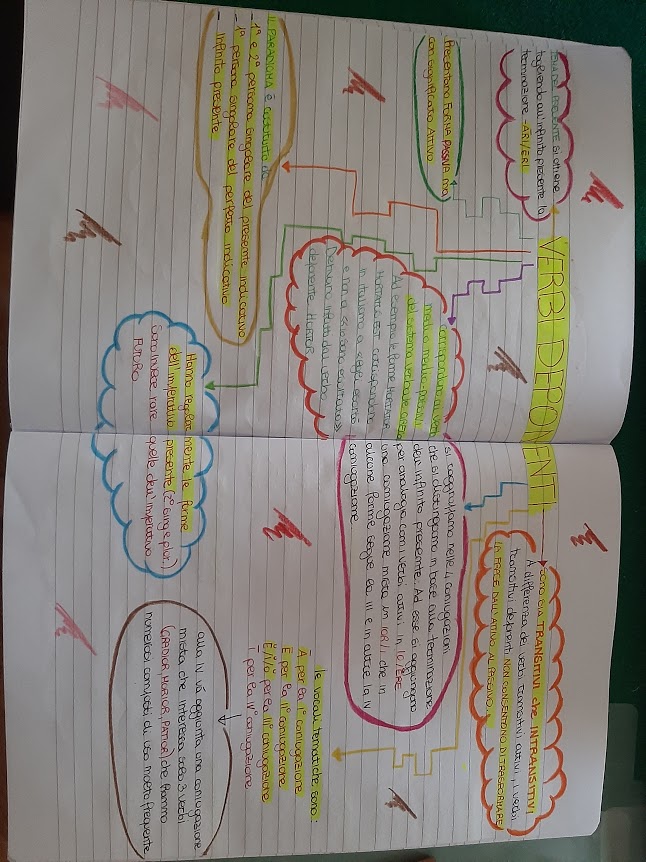 VERBI DEPONENTI
TEMA DEL PRESENTE si ottiene
togliendo all'infinito presente la
terminazione -ARI/ERI
Presentano FORMA PASSIVA ma
con significato ATTIVO
IL PARADIGMA è costituito da
- 1ª e 2ª persona singolare del presente indicativo
- 1ª persona singolare del perfetto indicativo
- infinito presente
corrispondono ai verbi
medi o medio-passivi
del sistema verbale greco
Ad esempio le forme HORTATOR
HORTATUS EST corrispondono
in italiano a
e non a essi sono esortati>>
Derivano infatti dal verbo
deponente HORTOR
Hanno regolarmente le forme
dell'imperativo presente (2° sing e plur.)
Sono invece rare quelle dell'imperativo
FUTURO
sono sia TRANSITIVI che INTRANSITIVI
A differenza dei verbi transitivi attivi, i verbi
transitivi deponenti NON CONSENTONO DI TRASFORMARE
LA FRASE DALL'ATTIVO AL PASSIVO
si raggruppano nelle 4 coniugazioni
che si distinguono in base alla terminazione
dell'infinito presente. Ad esse si aggiungono
per analogia con i verbi attivi in IO/ERE
una coniugazione mista in IOR/I che in
alcune forme segue la III e in altre la IV
coniugazione
le vocali tematiche sono:
Ā per la 1° coniugazione
Ē per la II° coniugazione
Ĕ/Ĭ/U per la III° coniugazione
Ī per la IV° coniugazione
alla IV va aggiunta una coniugazione
mista che interessa solo 3 verbi
(GRADIOR, MORIOR, PATIOR) che hanno
numerosi composti di uso molto frequente